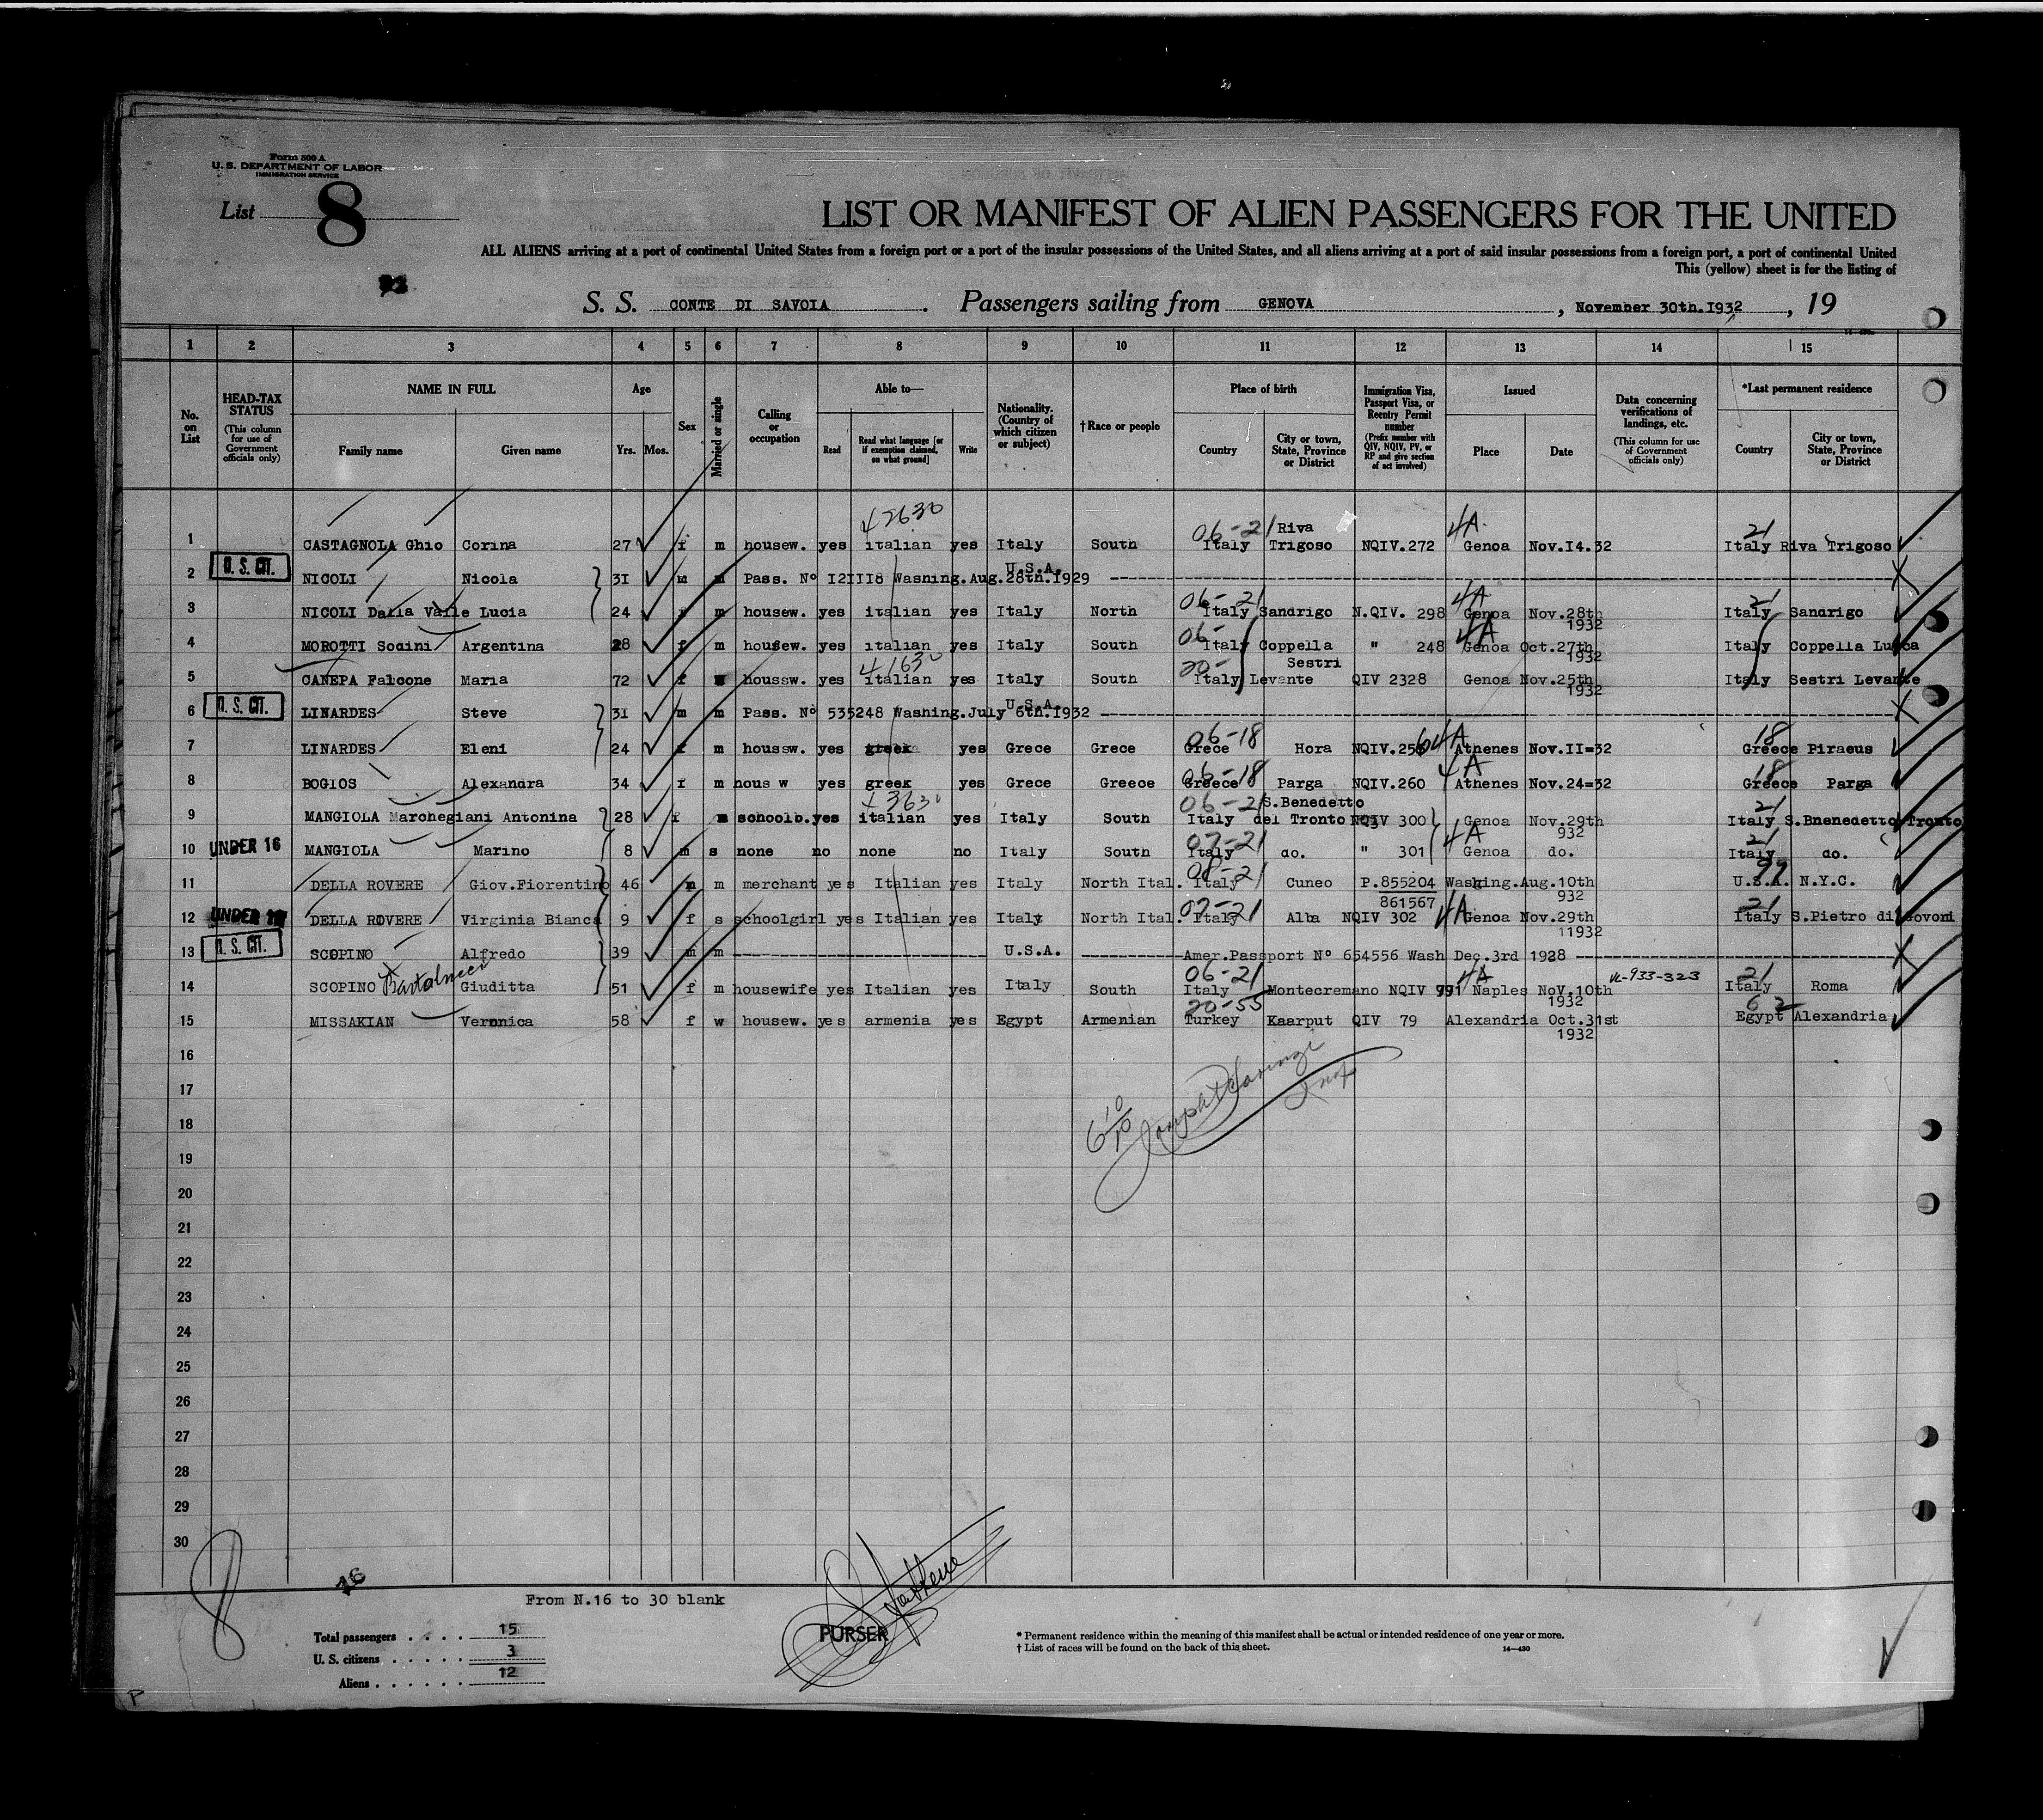 Form 500 A
U. S. DEPARTMENT OF LABOR
IMMIGRATION SERVICE
List 8
LIST OR MANIFEST OF ALIEN PASSENGERS FOR THE UNITED
ALL ALIENS arriving at a port of continental United States from a foreign port or a port of the insular possessions of the United States, and all aliens arriving at a port of said insular possessions from a foreign port, a port of continental United
This (yellow) sheet is for the listing of
S. S. CONTE DI SAVOIA. Passengers sailing from GENOVA, November 30th.1932, 19
1 2 3 4 5 6 7 8 9 10 11 12 13 14 15
No. on List
HEAD-TAX STATUS (This column for use of Government officials only)
NAME IN FULL Family name Given name
Age Yrs. Mos.
Sex
Married or single
Calling or occupation
Able to— Read Read what language [or if exemption claimed, on what ground] Write
Nationality. (Country of which citizen or subject)
† Race or people
Place of birth Country City or town, State, Province or District
Immigration Visa, Passport Visa, or Reentry Permit number (Prefix number with QIV, NQIV, PV, or RP and give section of act involved)
Issued Place Date
Data concerning verifications of landings, etc. (This column for use of Government officials only)
*Last permanent residence Country City or town, State, Province or District
42630 06-21 Riva 4A 21
1 CASTAGNOLA Ghio Corina 27 f m housew. yes italian yes Italy South Italy Trigoso NQIV.272 Genoa Nov.I4.32 Italy Riva Trigoso
2 U. S. CIT. NICOLI Nicola 3I m m Pass. Nº I2III8 Washing.Aug.28th.1929 U.S.A.
06-21 4A 21
3 NICOLI Dalla Valle Lucia 24 f m housew. yes italian yes Italy North Italy Sandrigo N.QIV. 298 Genoa Nov.28th 1932 Italy Sandrigo
06- 4A
4 MOROTTI Sodini Argentina 28 f m housew. yes italian yes Italy South Italy Coppella " 248 Genoa Oct.27th 1932 Italy Coppella Lucca
41630 20- Sestri
5 CANEPA Falcone Maria 72 f houssw. yes italian yes Italy South Italy Levante QIV 2328 Genoa Nov.25th 1932 Italy Sestri Levante
6 U. S. CIT. LINARDES Steve 3I m m Pass. Nº 535248 Washing.July 6th.1932 U.S.A.
06-18 4A 18
7 LINARDES Eleni 24 f m houssw. yes greek yes Grece Grece Grece Hora NQIV.256 Athenes Nov.II=32 Greece Piraeus
06-18 4A 18
8 BOGIOS Alexandra 34 f m hous w yes greek yes Grece Greece Greece Parga NQIV.260 Athenes Nov.24=32 Greece Parga
06-21 S.Benedetto 21
9 MANGIOLA Marchegiani Antonina 28 f m schoolb. yes italian yes Italy South Italy del Tronto NQIV 300 Genoa Nov.29th 932 Italy S.Bnenedetto Tronto
07-21 4A 21
10 UNDER 16 MANGIOLA Marino 8 m s none no none no Italy South Italy do. " 301 Genoa do. Italy do.
08-21 99
11 DELLA ROVERE Giov.Fiorentino 46 m m merchant yes Italian yes Italy North Ital. Italy Cuneo P.855204 861567 Washing.Aug.10th 932 U.S.A. N.Y.C.
07-21 4A 21
12 UNDER 16 DELLA ROVERE Virginia Bianca 9 f s schoolgirl yes Italian yes Italy North Ital. Italy Alba NQIV 302 Genoa Nov.29th 11932 Italy S.Pietro di Govoni
13 U. S. CIT. SCOPINO Alfredo 39 m m U.S.A. Amer.Passport Nº 654556 Wash Dec.3rd 1928
06-21 4A 21
14 SCOPINO Bartolucci Giuditta 51 f m housewife yes Italian yes Italy South Italy Montecremano NQIV 991 Naples Nov.10th 1932 Italy Roma
20-55 62
15 MISSAKIAN Veronica 58 f w housew. yes armenia yes Egypt Armenian Turkey Kaarput QIV 79 Alexandria Oct.31st 1932 Egypt Alexandria
16
17
18
19
20
21
22
23
24
25
26
27
28
29
30
8
16
From N.16 to 30 blank
Total passengers 15
U. S. citizens 3
Aliens 12
PURSER
* Permanent residence within the meaning of this manifest shall be actual or intended residence of one year or more.
† List of races will be found on the back of this sheet.
14—430
P